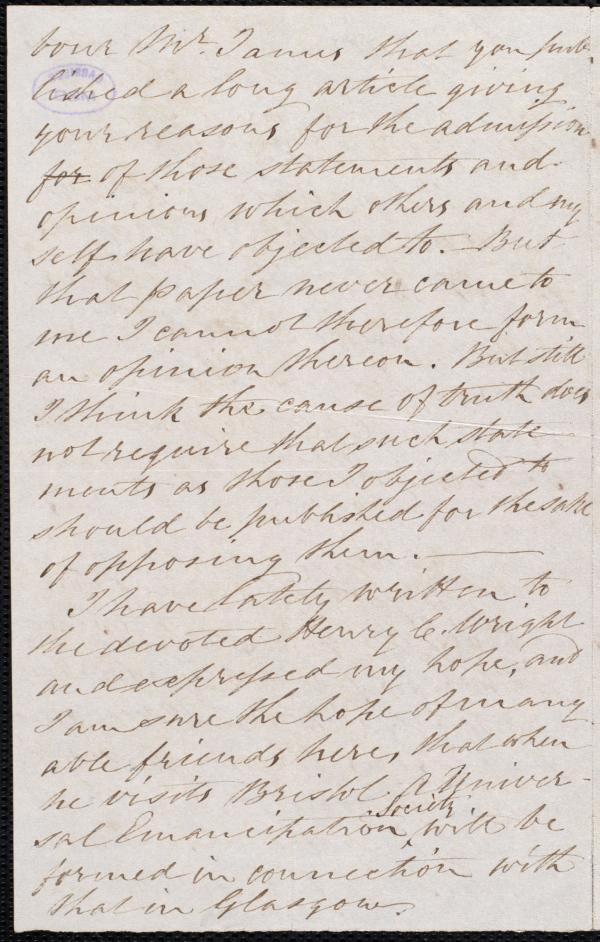 bour Mr. James that you pub-
lished a long article giving
your reasons for the admission
for of those statements and
opinions which others and my
self have objected to. But
that paper never came to
me I cannot therefore form
an opinion thereon. But still
I think the cause of truth does
not require that such state
ments as those I objected to
should be published for the sake
of opposing them. —
I have lately written to
the devoted Henry C. Wright
and expressed my hope, and
I am sure the hope of many
able friends here, that when
he visits Bristol a Univer-
sal Emancipation Society will be
formed in connection with
that in Glasgow.